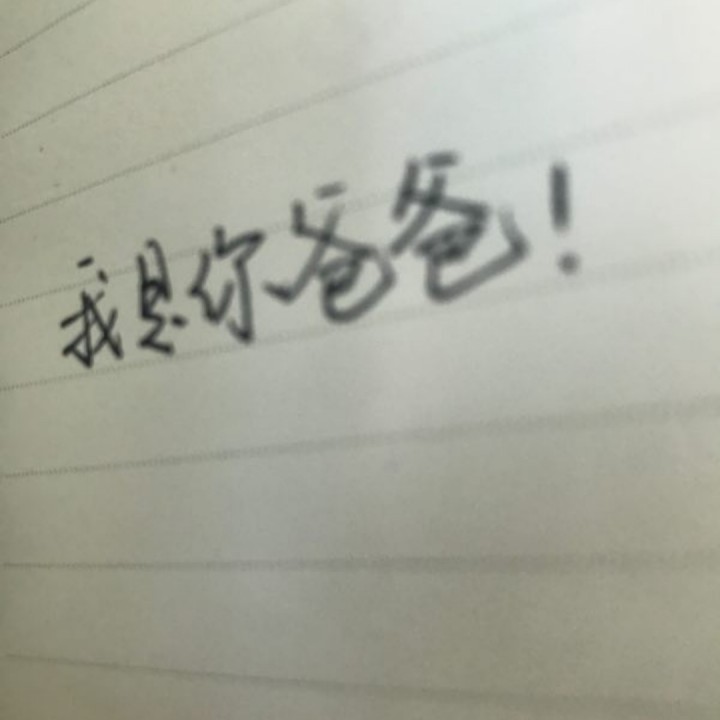 我是你爸爸！